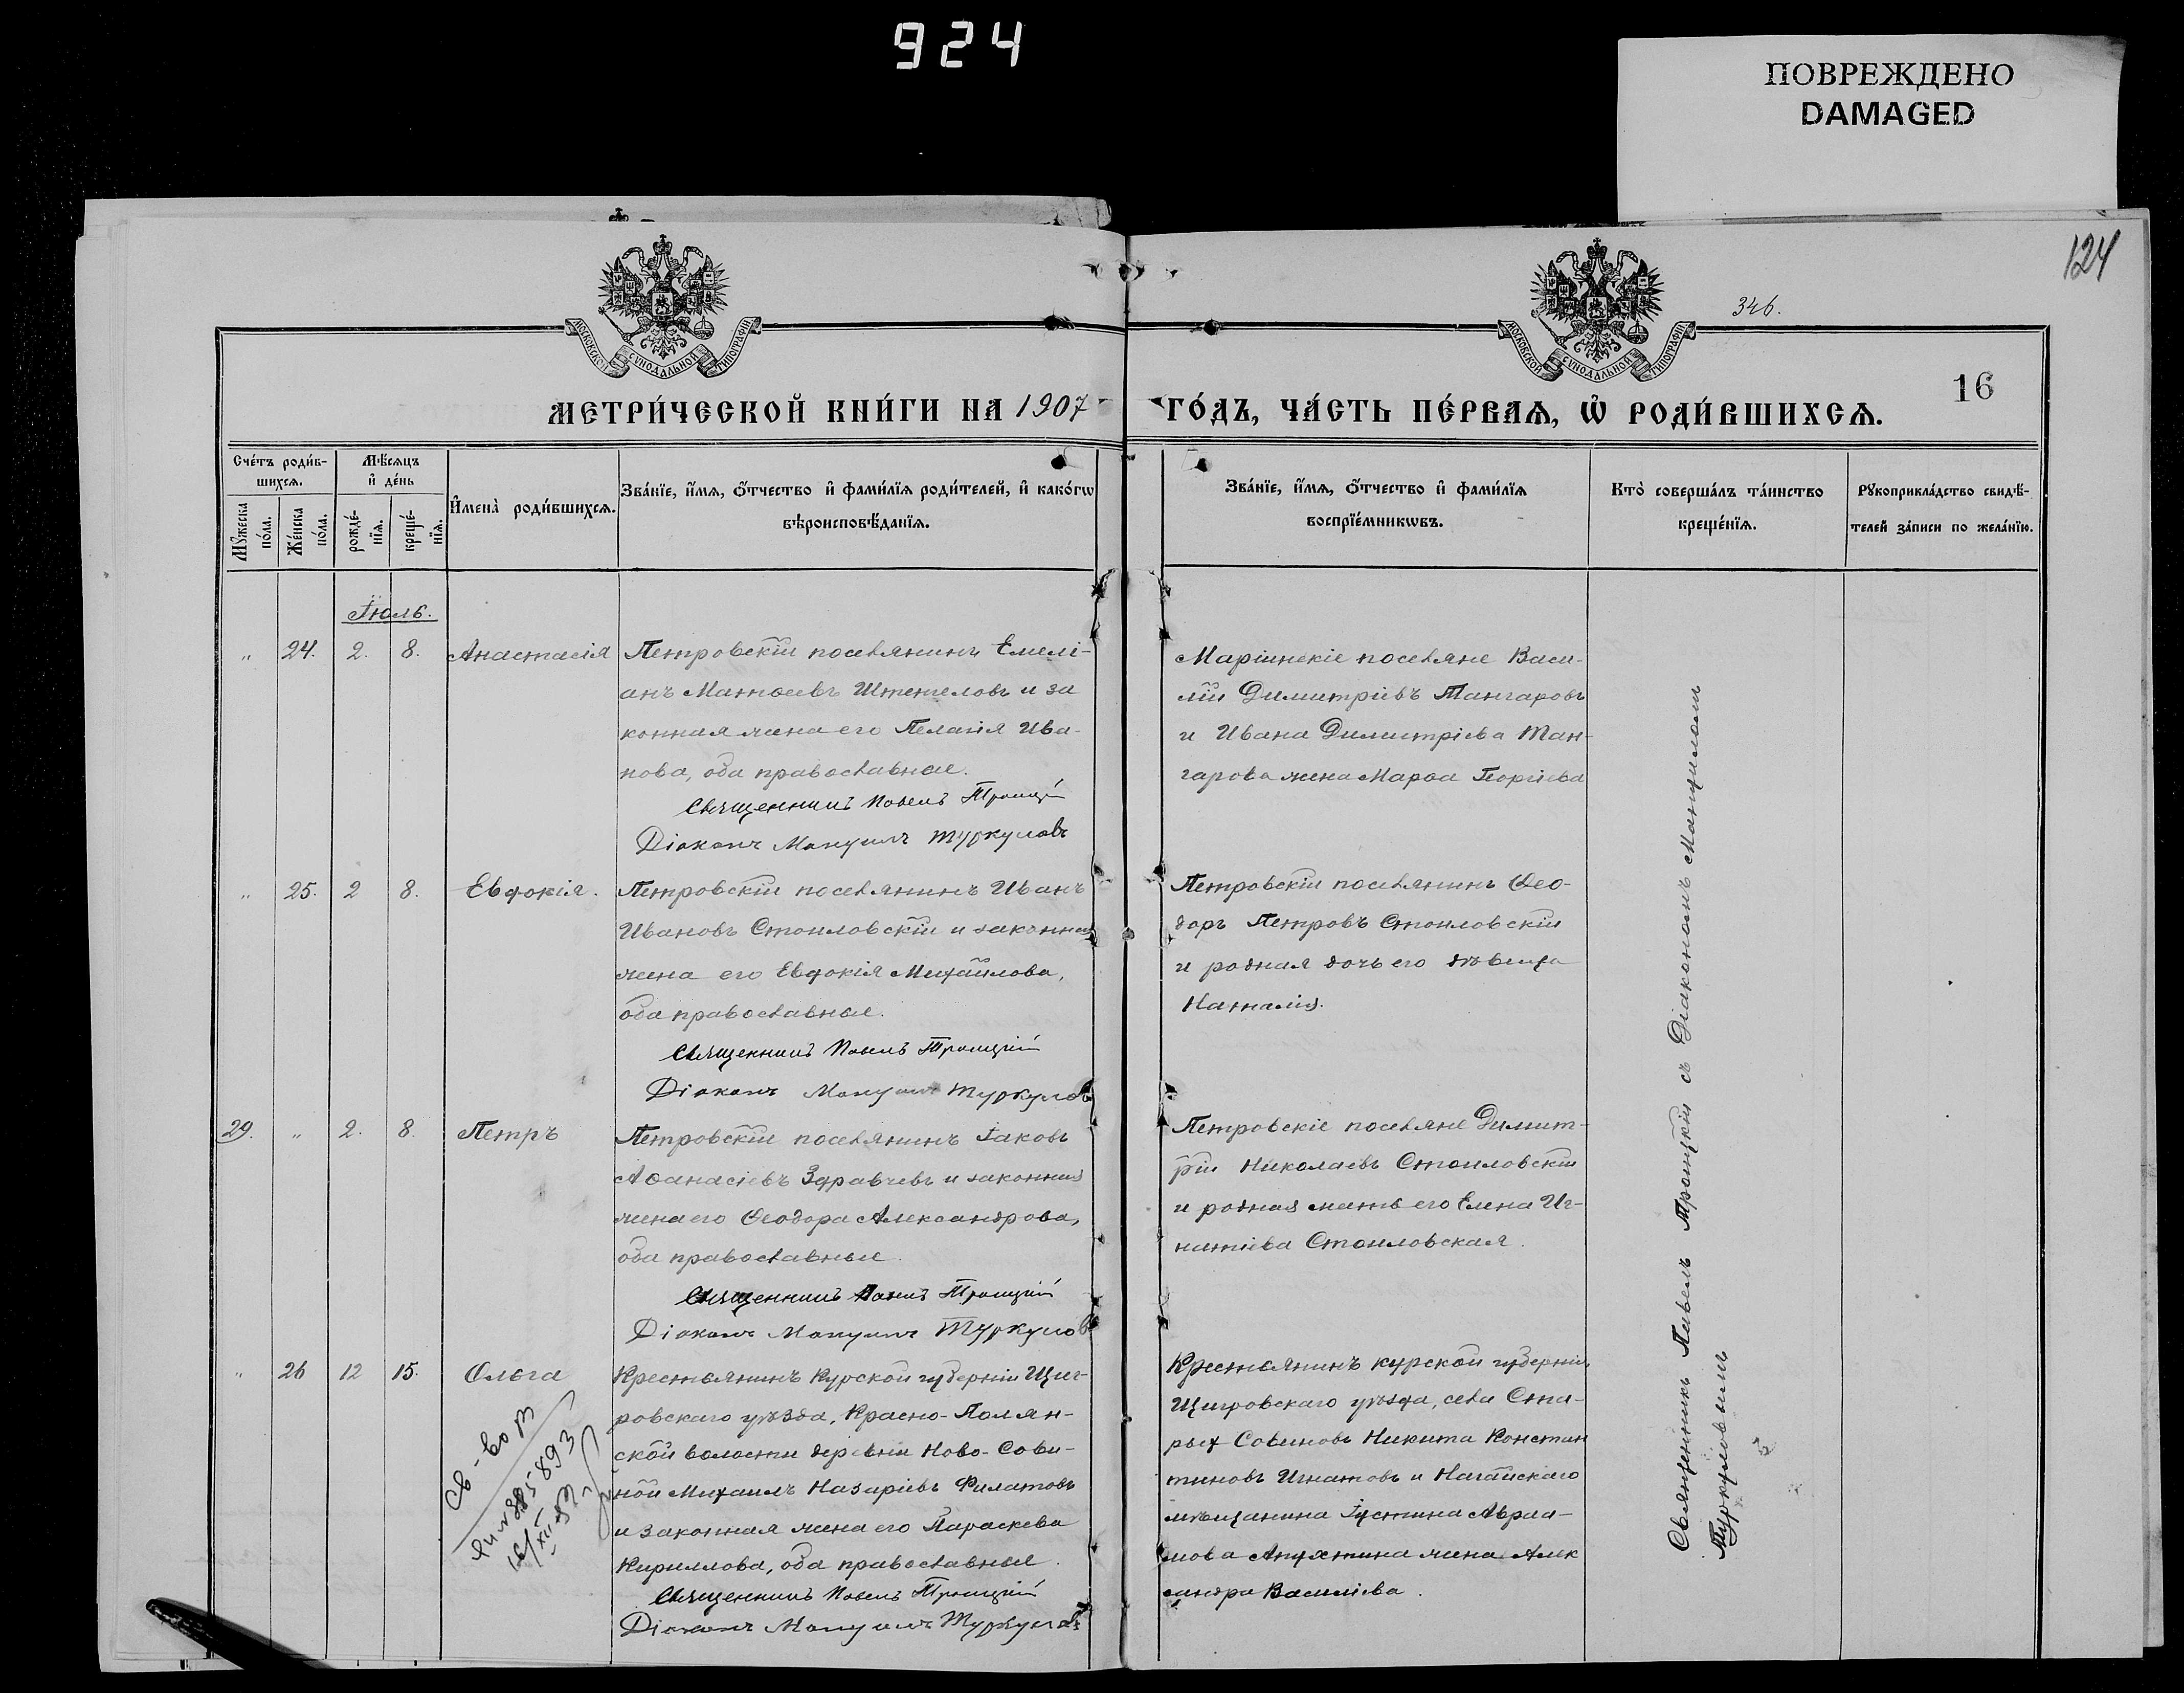 924
ПОВРЕЖДЕНО
DAMAGED
124
346.
16
МОСКОВСКОЙ СѴНОДАЛЬНОЙ ТИПОГРАФІИ
МОСКОВСКОЙ СѴНОДАЛЬНОЙ ТИПОГРАФІИ
МЕТРИ́ЧЕСКОЙ КНИ́ГИ НА 1907 ГО́ДЪ, ЧА́СТЬ ПЕ́РВАѦ, Ѽ РОДИ́ВШИХСѦ.
Сче́тъ роди́в-
шихсѧ.
Мѣ́сѧцъ
и҆ де́нь
Мꙋ́жеска
по́ла.
Же́нска
по́ла.
рожде́-
нїѧ.
креще́-
нїѧ.
И҆мена̀ роди́вшихсѧ.
Зва́нїе, и҆́мѧ, ѻ҆́тчество и҆ фами́лїѧ роди́телей, и҆ како́гѡ
вѣроисповѣ́данїѧ.
Зва́нїе, и҆́мѧ, ѻ҆́тчество и҆ фами́лїѧ
воспрїе́мникѡвъ.
Кто̀ соверша́лъ та́инство
креще́нїѧ.
Рꙋкоприкла́дство свидѣ́-
телей за́писи по жела́нїю.
Іюль.
„ 24. 2. 8. Анастасія
Петровскій поселянинъ Емелі-
анъ Матѳеевъ Штенгеловъ и за
конная жена его Пелагія Ива-
нова, оба православные.
Священникъ Павелъ Троицкій
Діаконъ Мануилъ Туркуловъ
Маріинскіе поселяне Васи-
лій Димитріевъ Тангаровъ
и Ивана Димитріева Тан-
гарова жена Марѳа Георгіева
„ 25. 2 8. Евдокія.
Петровскій поселянинъ Иванъ
Ивановъ Стоиловскій и законная
жена его Евдокія Михайлова,
оба православные.
Священникъ Павелъ Троицкій
Діаконъ Мануилъ Туркуловъ
Петровскій поселянинъ Ѳео-
доръ Петровъ Стоиловскій
и родная дочь его дѣвица
Наталія.
29. „ 2. 8. Петръ
Петровскій поселянинъ Іаковъ
Аѳанасіевъ Здравчевъ и законная
жена его Ѳеодора Александрова,
оба православные.
Священникъ Павелъ Троицкій
Діаконъ Мануилъ Туркулов
Петровскіе поселяне Димит-
рій Николаевъ Стоиловскій
и родная мать его Елена Иг-
натіева Стоиловская.
„ 26 12 15. Ольга
Св-во
Крестьянинъ Курской губерніи Щиг-
ровскаго уѣзда, Красно-Полян-
ской волости деревни Ново-Сави-
ной Михаилъ Назаріевъ Филатовъ
и законная жена его Параскева
Кириллова, оба православные.
Священникъ Павелъ Троицкій
Діаконъ Мануилъ Туркуловъ
Крестьянинъ Курской губерніи,
Щигровскаго уѣзда, села Ста-
рых Савиновъ Никита Констан
тиновъ Игнатовъ и Ногайскаго
мѣщанина Іустина Авраа-
мова Апухтина жена Алек
сандра Василіева.
Священникъ Павелъ Троицкій съ Діакономъ Мануиломъ
Туркуловымъ